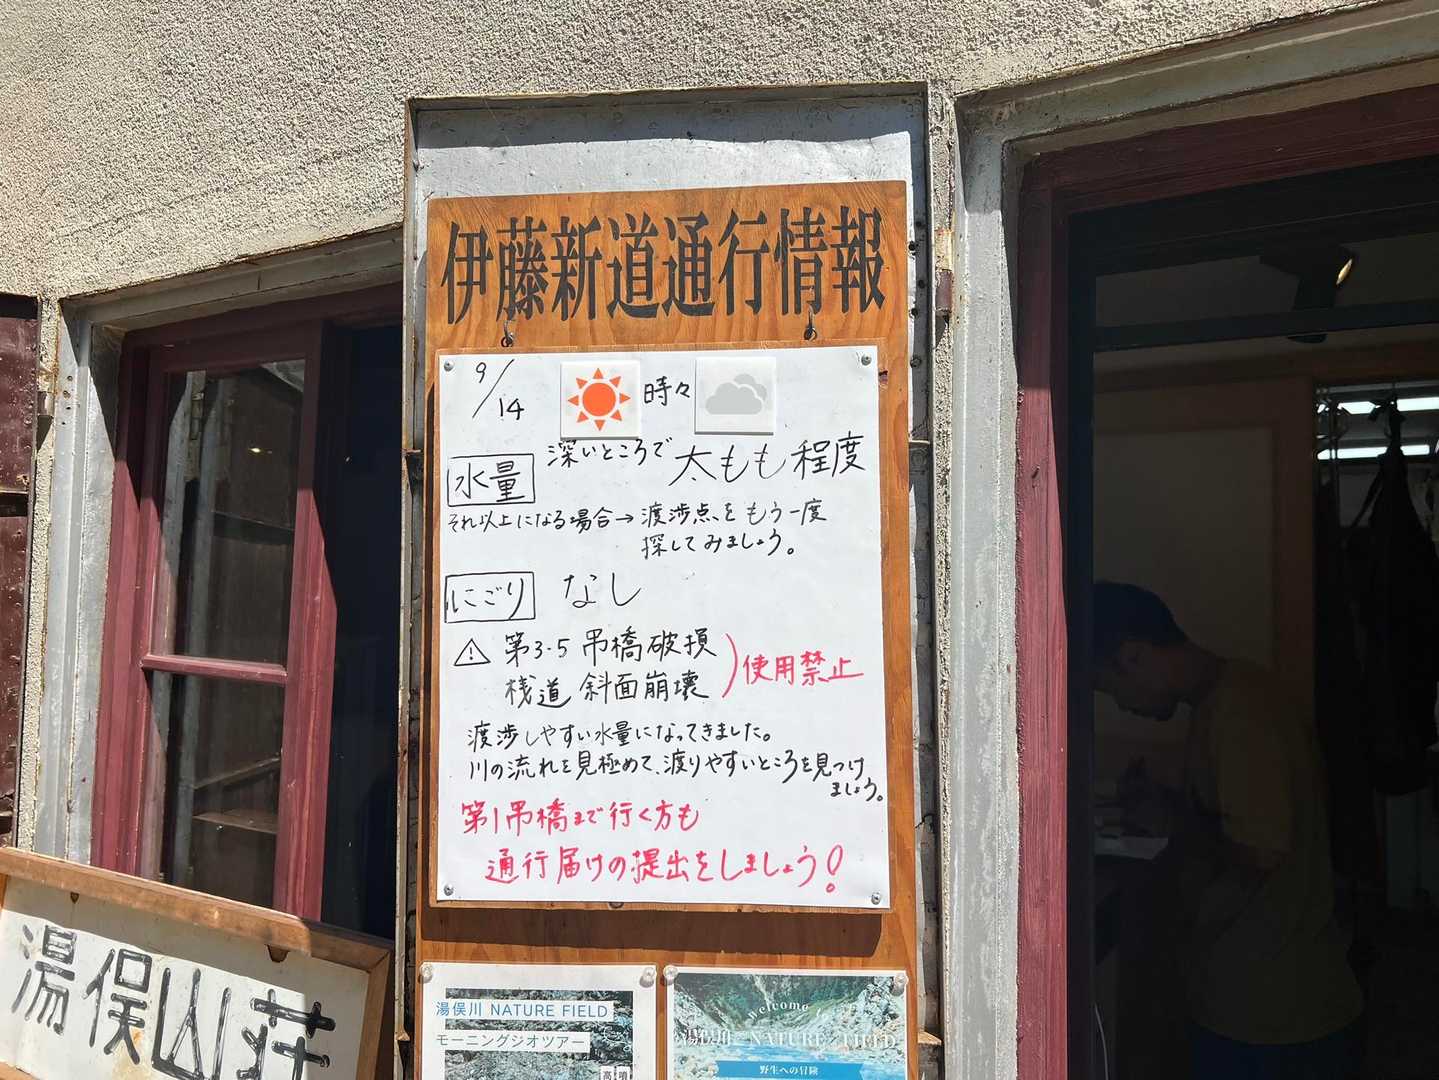 伊藤新道通行情報
9/14 時々
水量 深いところで 太もも程度
それ以上になる場合→渡渉点をもう一度
探してみましょう。
にごり なし
⚠ 第3・5 吊橋破損
桟道 斜面崩壊
使用禁止
渡渉しやすい水量になってきました。
川の流れを見極めて、渡りやすいところを見つけ
ましょう。
第1吊橋まで行く方も
通行届けの提出をしましょう!
湯俣山荘
湯俣川 NATURE FIELD
モーニングジオツアー
高噴
welcome
湯俣川 NATURE FIELD
野生への冒険